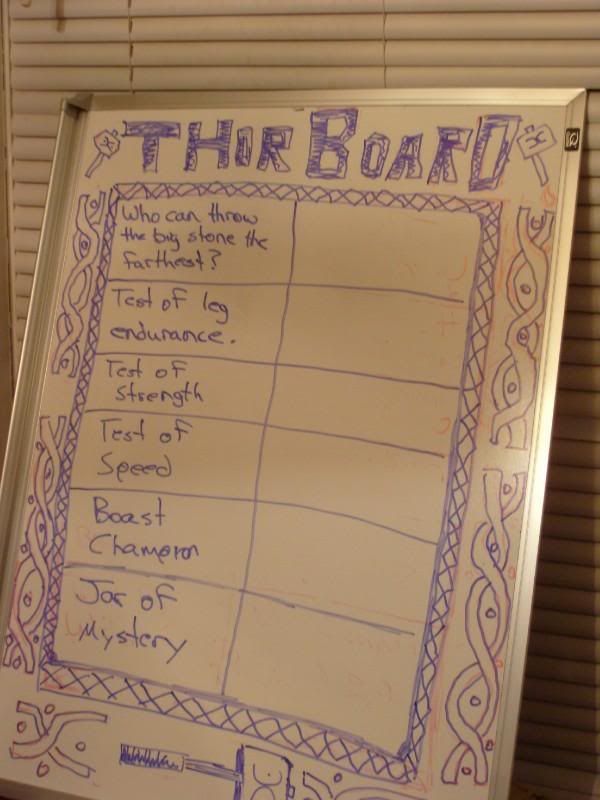 THOR BOARD
Who can throw
the big stone the
farthest?
Test of leg
endurance.
Test of
Strength
Test of
Speed
Boast
Champion
Jar of
Mystery